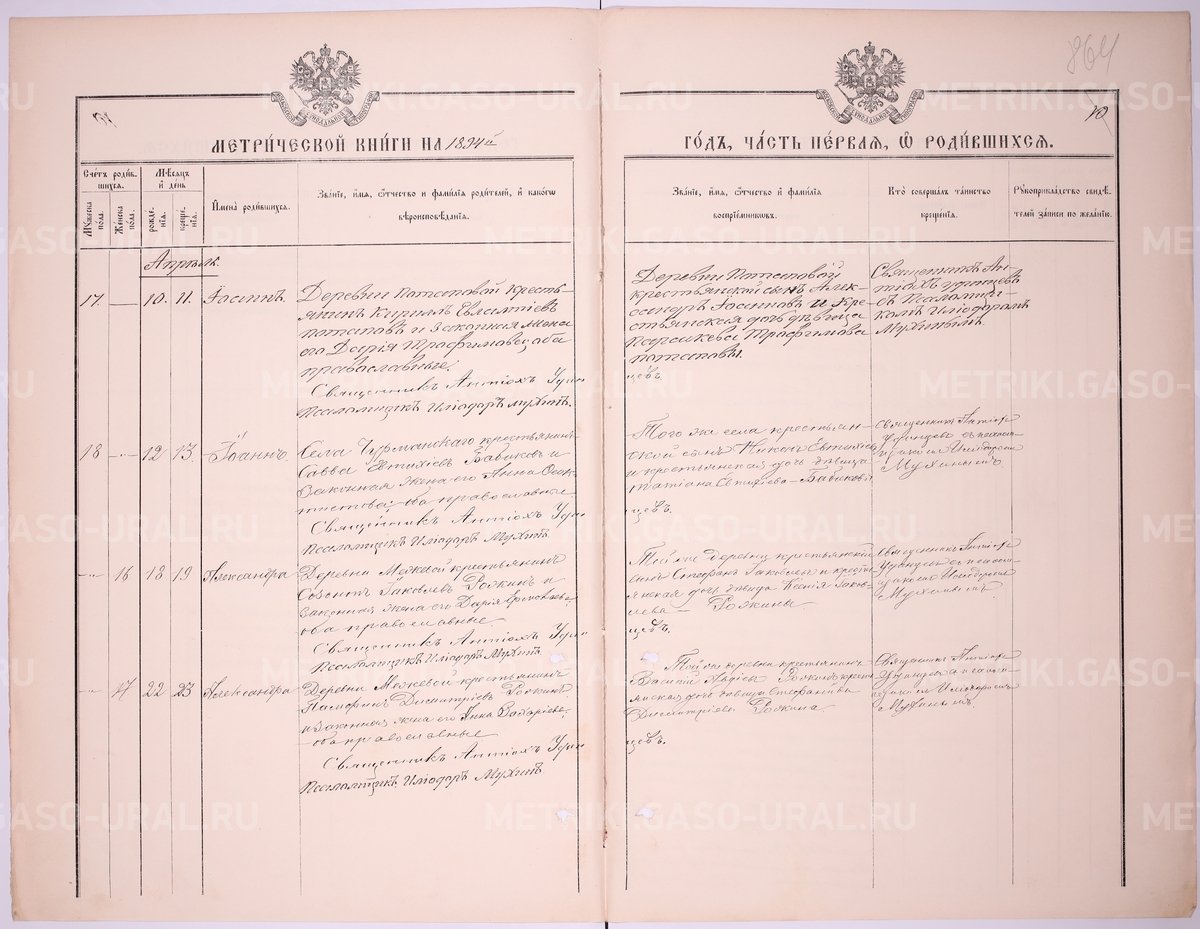 864
10
МЕТРИ́ЧЕСКОЙ КНИ́ГИ НА 1894й
ГО́ДЪ, ЧА́СТЬ ПЕ́РВАѦ, Ѡ РОДИ́ВШИХСѦ.
Сче́тъ роди́в-
шихся.
Мѣ́сяцъ
и день
Му́жеска пола.
Же́нска пола.
рожде́-
нїѧ.
креще́-
нїѧ.
И҆мена̀ роди́вшихся.
Зва́нїе, и҆́мѧ, ѻ҆́тчество и фами́лїѧ роди́телей, и како́гѡ
вѣроисповѣ́данїѧ.
Зва́нїе, и҆́мѧ, ѻ҆́тчество и фами́лїѧ
воспрїе́мниковъ.
Кто̀ соверша́лъ та́инство
креще́нїѧ.
Рꙋкоприкла́дство свидѣ́-
телей за́писи по жела́нїю.
Апрѣль.
17. — 10. 11. Іосифъ.
Деревни Потаповой кресть-
янинъ Кириллъ Евсигніевъ
Потаповъ и законная жена
его Дарія Трофимова, оба
православные.
Священникъ Антіохъ Удин-
цевъ.
Псаломщикъ Иліодоръ Мухинъ.
Деревни Потаповой
крестьянскій сынъ Алек-
сандръ Іосифовъ и Кре-
стьянская дочь дѣвица
Параскева Трофимова
Потаповы.
Священникъ Ан-
тіохъ Удинцевъ
съ Псаломщи-
комъ Иліодоромъ
Мухинымъ.
18 12 13 Іоаннъ
Села Чурманскаго крестьянинъ
Савва Евтихіевъ Бабиковъ и
законная жена его Анна
оба православные
Священникъ Антіохъ Удин-
цевъ.
Псаломщикъ Иліодоръ Мухинъ
Того же села крестьян-
ской сынъ Никонъ Евтихіевъ
и крестьянская дочь дѣвица
Татіана Евтихіева Бабиковы
Священникъ Антіохъ
Удинцевъ съ псалом-
щикомъ Иліодоромъ
Мухинымъ
16 18 19 Александра
Деревни Межевой крестьянинъ
Созонтъ Іаковлевъ Рожинъ и
законная жена его Дарія
оба православные
Священникъ Антіохъ Удин-
цевъ.
Псаломщикъ Иліодоръ Мухинъ
Той же деревни крестьянскій
сынъ Стефанъ Іаковлевъ и кресть-
янская дочь дѣвица Ксенія Іаков-
лева — Рожины
Священникъ Антіохъ
Удинцевъ съ псалом-
щикомъ Иліодоромъ
Мухинымъ
17 22 23 Александра
Деревни Межевой крестьянинъ
Памфилъ Димитріевъ Рожинъ
и законная жена его Анна Захаріева,
оба православные
Священникъ Антіохъ Удин-
цевъ.
Псаломщикъ Иліодоръ Мухинъ
Той же деревни крестьянинъ
Василій Рожинъ и кресть-
янская дочь дѣвица Стефанида
Димитріева Рожина
Священникъ Антіохъ
Удинцевъ съ псалом-
щикомъ Иліодоромъ
Мухинымъ.
METRIKI.GASO-URAL.RU